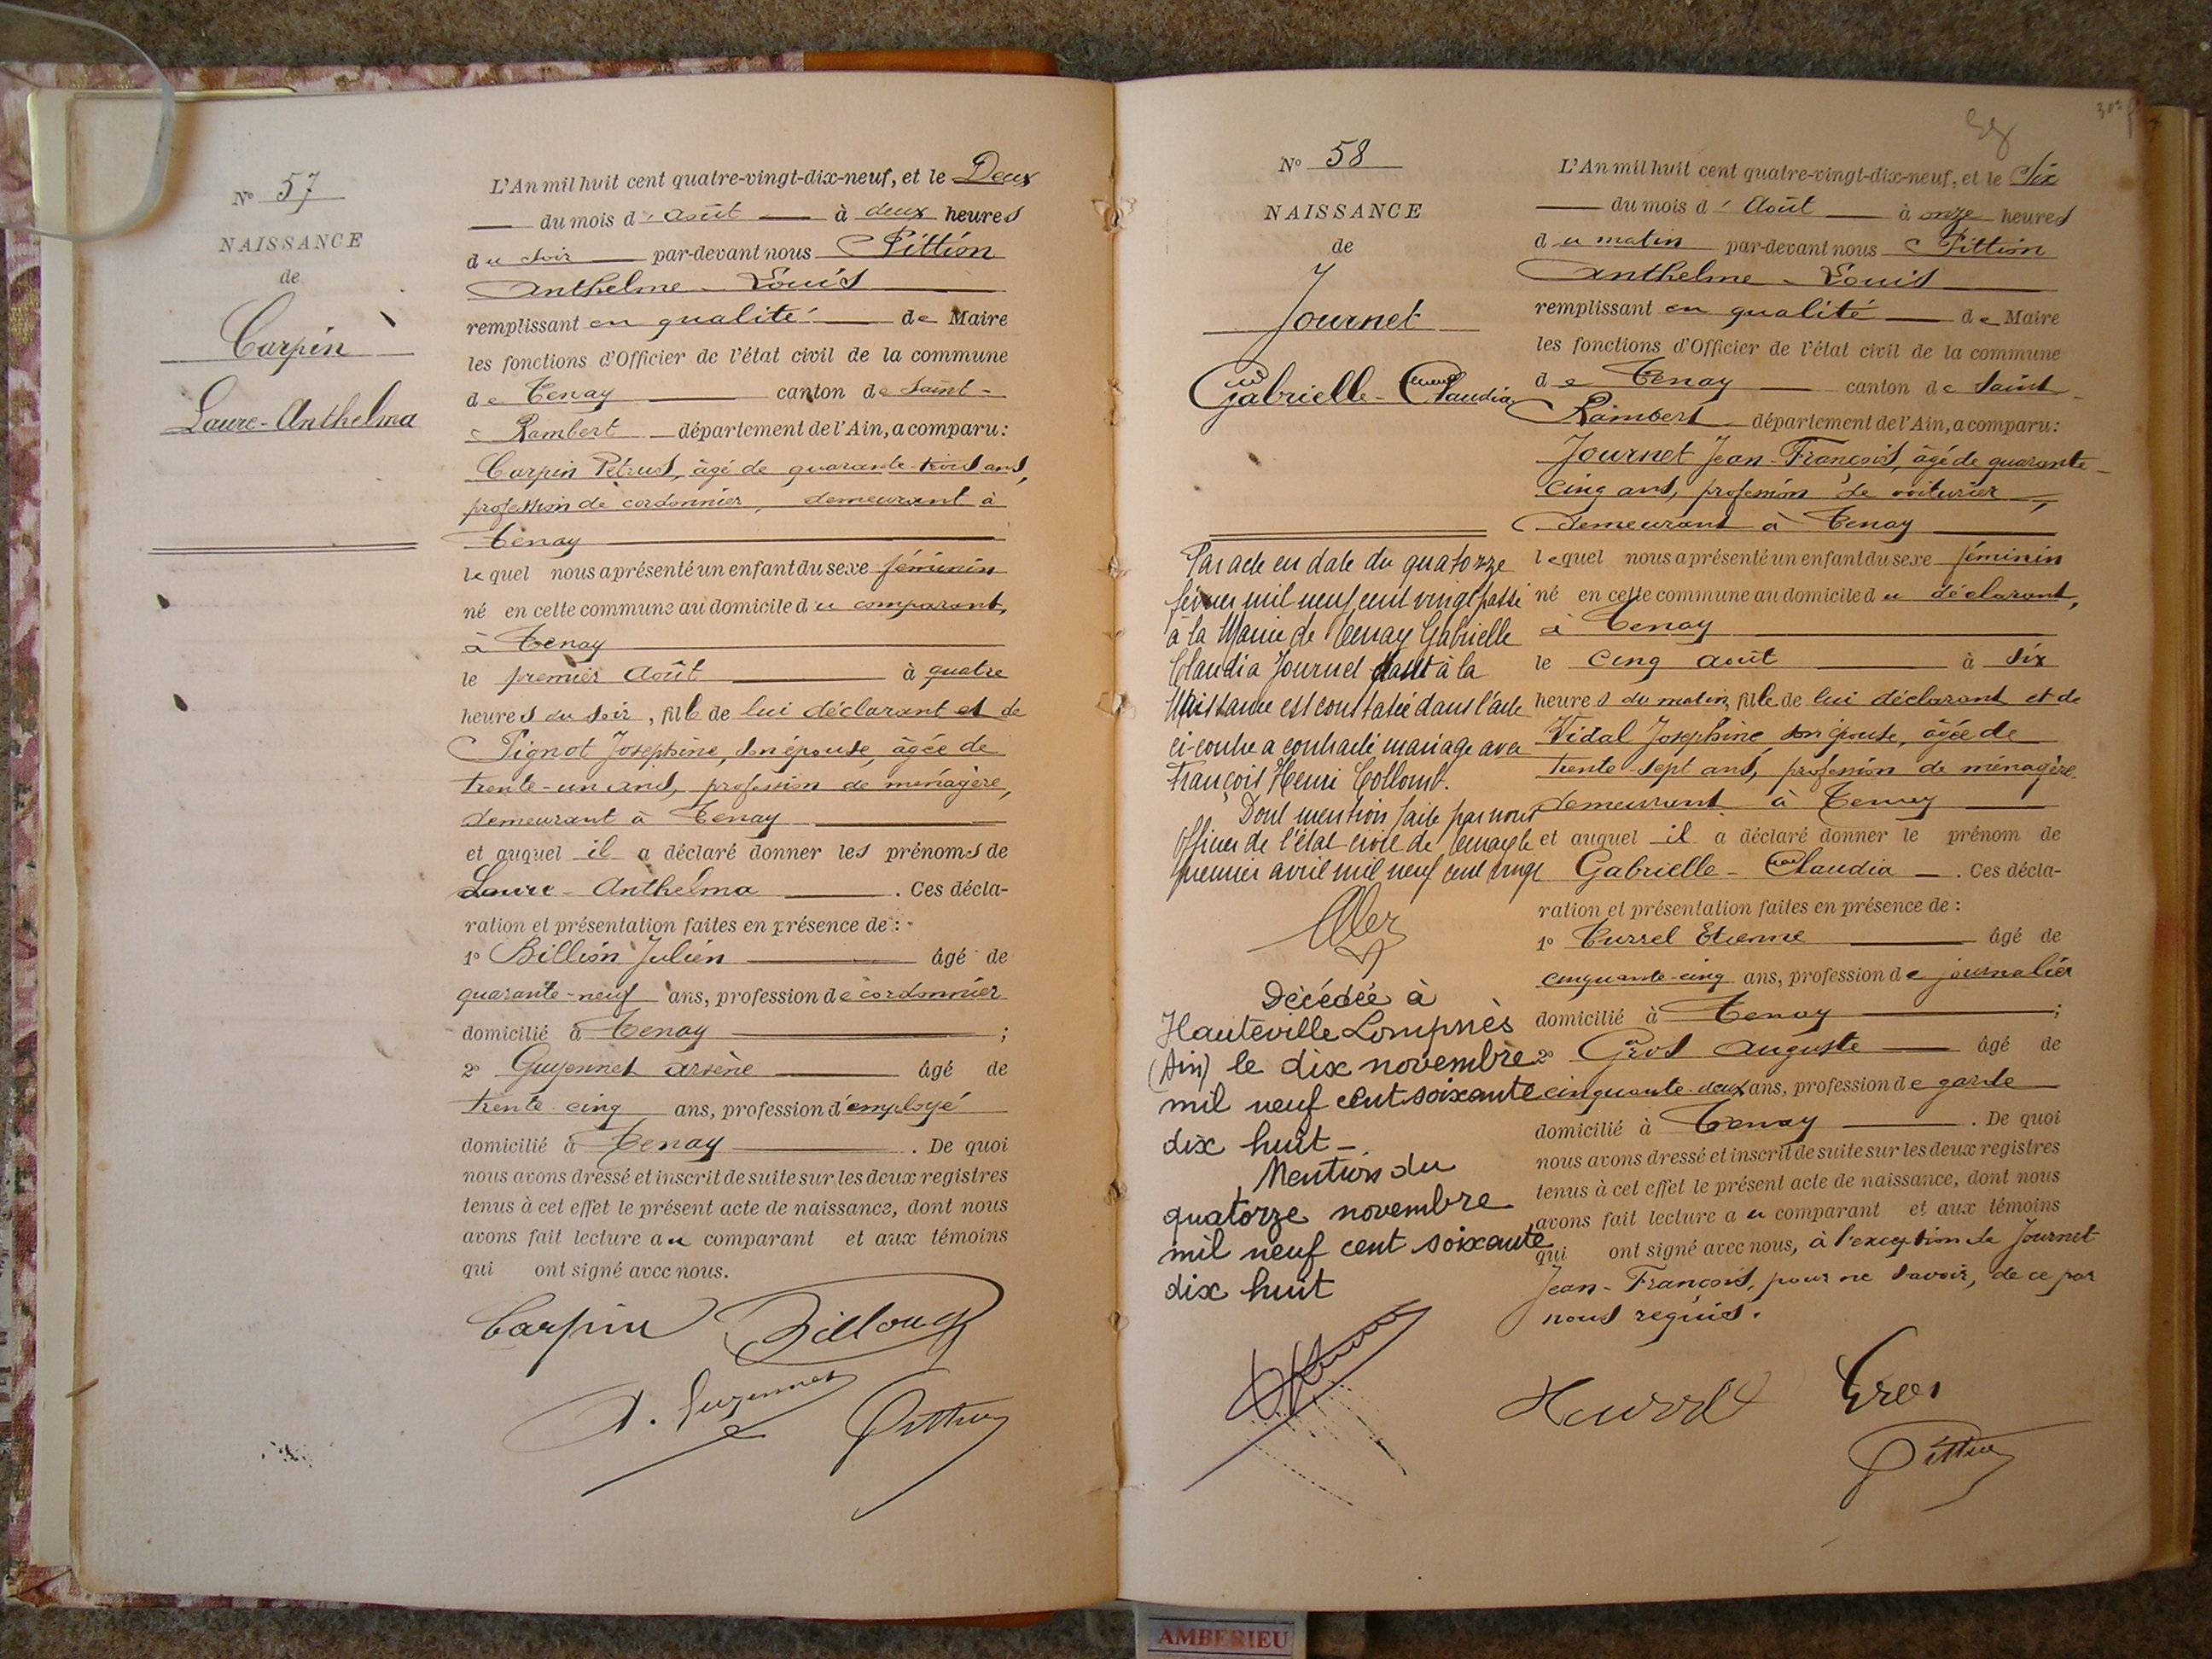 N° 57
NAISSANCE
de
Carpin
Laure-Anthelma
L'An mil huit cent quatre-vingt-dix-neuf, et le Deux
du mois d'Août à deux heures
du soir par-devant nous Pittion
Anthelme-Louis
remplissant en qualité de Maire
les fonctions d'Officier de l'état civil de la commune
de Tenay canton de Saint-
Rambert département de l'Ain, a comparu:
Carpin Pétrus, âgé de quarante-trois ans,
profession de cordonnier, demeurant à
Tenay
lequel nous a présenté un enfant du sexe féminin
né en cette commune au domicile du comparant,
à Tenay
le premier Août à quatre
heures du soir, fille de lui déclarant et de
Pignot Joséphine, son épouse, âgée de
trente-un ans, profession de ménagère,
demeurant à Tenay
et auquel il a déclaré donner les prénoms de
Laure-Anthelma. Ces décla-
ration et présentation faites en présence de:
1° Billion Julien âgé de
quarante-neuf ans, profession de cordonnier
domicilié à Tenay;
2° Guyennet Arsène âgé de
trente-cinq ans, profession d'employé
domicilié à Tenay. De quoi
nous avons dressé et inscrit de suite sur les deux registres
tenus à cet effet le présent acte de naissance, dont nous
avons fait lecture au comparant et aux témoins
qui ont signé avec nous.
Carpin
Pittion
N° 58
NAISSANCE
de
Journet
Gabrielle-Claudia
Par acte en date du quatorze
février mil neuf cent vingt passé
à la Mairie de Tenay Gabrielle
Claudia Journet dont à la
Naissance est constatée dans l'acte
ci-contre a contracté mariage avec
François Henri Collomb.
Dont mention faite par nous
Officier de l'état civil de Tenay le
premier avril mil neuf cent vingt
Décédée à
Hauteville Lompnès
(Ain) le dix novembre
mil neuf cent soixante
dix huit-
Mention du
quatorze novembre
mil neuf cent soixante
dix huit
L'An mil huit cent quatre-vingt-dix-neuf, et le Six
du mois d'Août à onze heures
du matin par-devant nous Pittion
Anthelme-Louis
remplissant en qualité de Maire
les fonctions d'Officier de l'état civil de la commune
de Tenay canton de Saint-
Rambert département de l'Ain, a comparu:
Journet Jean-François, âgé de quarante-
cinq ans, profession de voiturier,
demeurant à Tenay
lequel nous a présenté un enfant du sexe féminin
né en cette commune au domicile du déclarant,
à Tenay
le cinq août à six
heures du matin, fille de lui déclarant et de
Vidal Joséphine son épouse, âgée de
trente-sept ans, profession de ménagère
demeurant à Tenay
et auquel il a déclaré donner le prénom de
Gabrielle-Claudia. Ces décla-
ration et présentation faites en présence de:
1° Etienne âgé de
cinquante-cinq ans, profession de journalier
domicilié à Tenay;
2° Gros Auguste âgé de
cinquante-deux ans, profession de garde
domicilié à Tenay. De quoi
nous avons dressé et inscrit de suite sur les deux registres
tenus à cet effet le présent acte de naissance, dont nous
avons fait lecture au comparant et aux témoins
qui ont signé avec nous, à l'exception de Journet
Jean-François, pour ne savoir, de ce par
nous requis.
Gros
Pittion
AMBERIEU